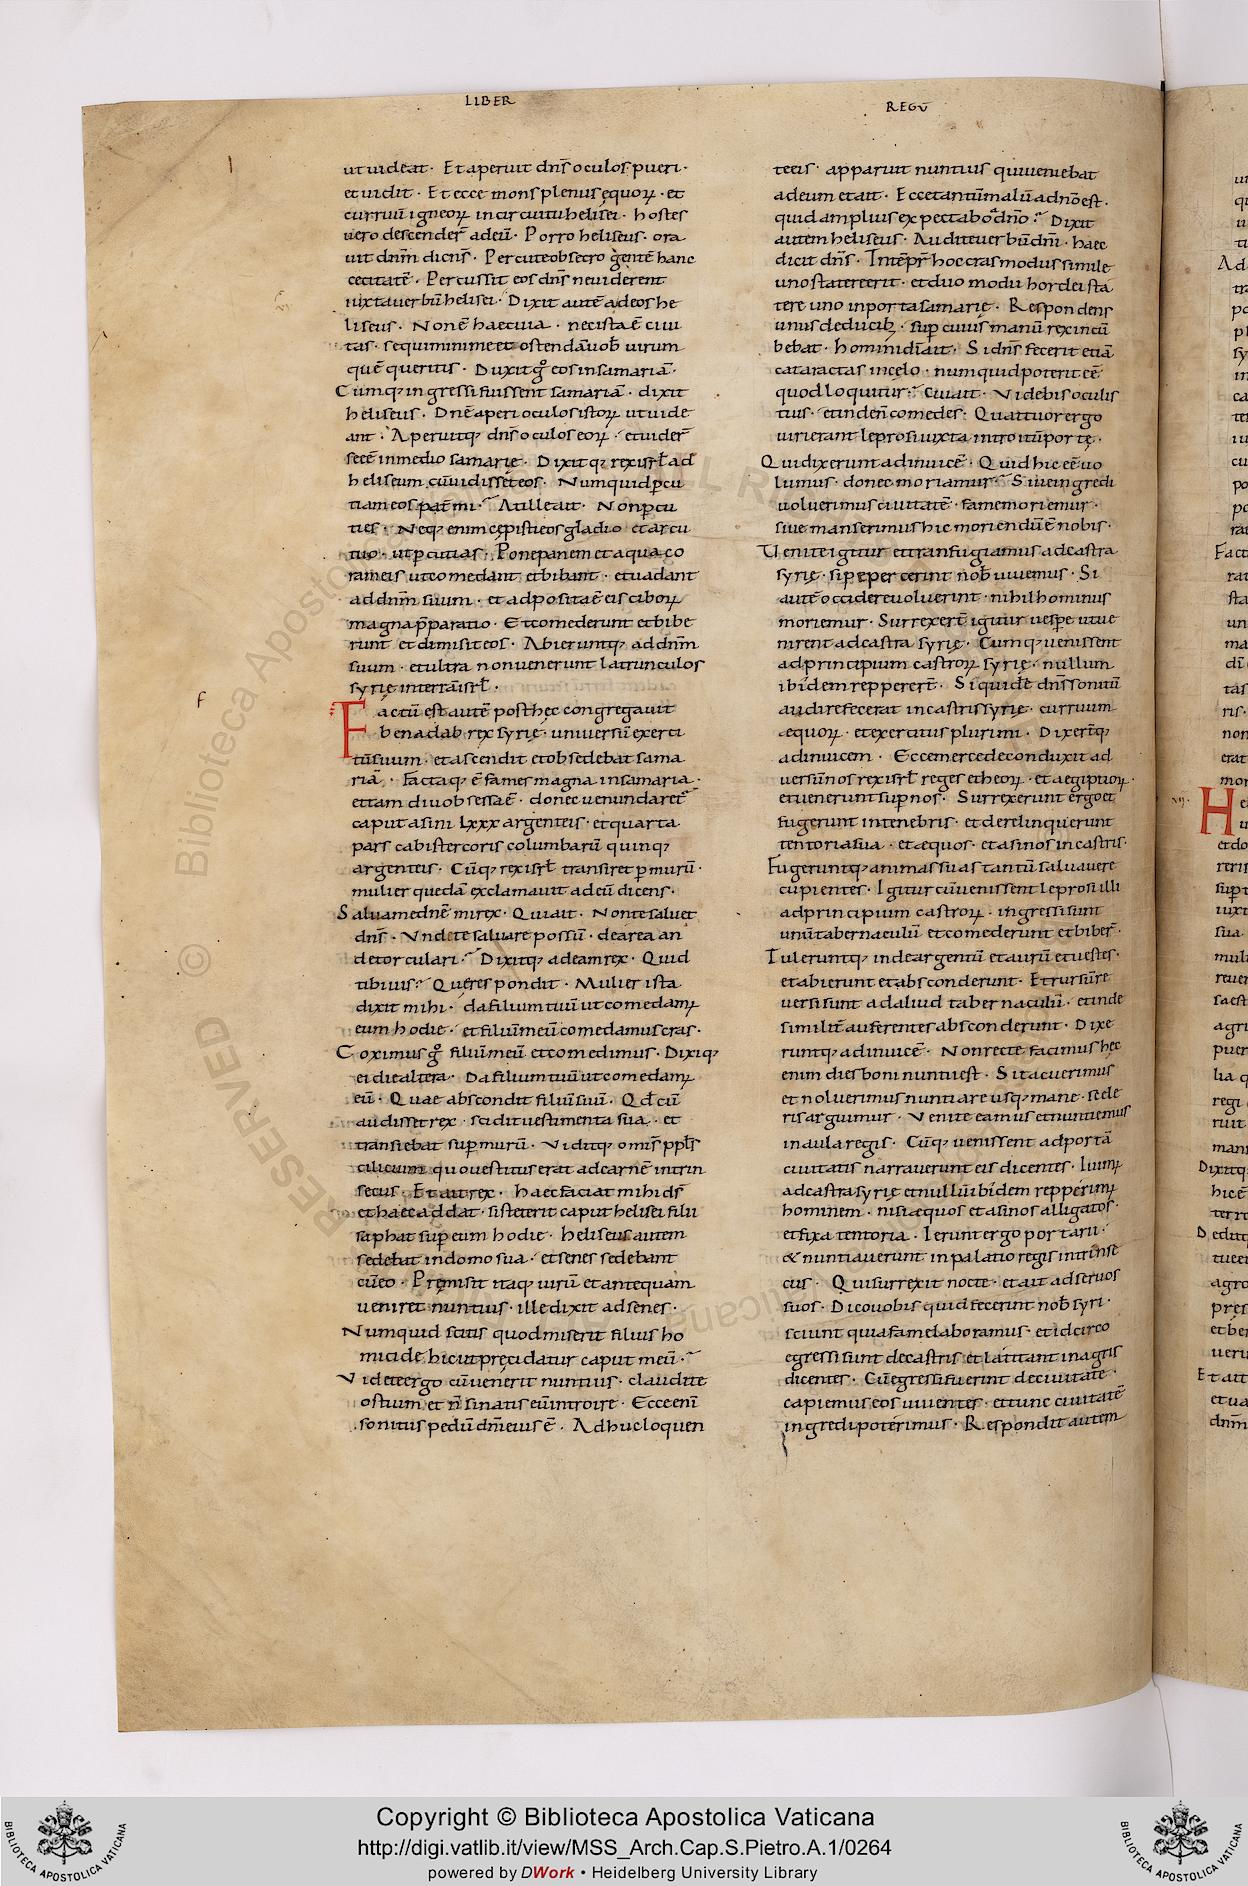 LIBER
REGŪ
ut uideat· Et aperuit dn̄s oculos pueri·
et uidit· Et ecce mons plenus equoꝝ· et
curruū igneoꝝ in circuitu helisei· hostes
uero descender̄ ad eū· Porro heliseus· ora
uit dn̄m dicens̄· Percute obsecro gentē hanc
cecitatē· Percussit eos dn̄s ne uiderent
iuxta uerbū helisei· Dixit autē ad eos he
liseus· Non ē haec uia· nec ista ē ciui
tas· sequimini me et ostendā uob̄ uirum
quē queritis· Duxit gͦ eos in samariā·
Cumq; ingressi fuissent samariā· dixit
heliseus· Dn̄e aperi oculos istoꝝ ut uide
ant· Aperuitq; dn̄s oculos eoꝝ· et uider̄
se eē in medio samarię· Dixitq; rex isrl̄ ad
heliseum cū uidisset eos· Numquid ꝑcu
tiam eos pat̄ mi· At ille ait· Non ꝑcu
ties· Neq; enim cępisti eos gladio et arcu
tuo· ut ꝑcutias· Pone panem et aqua co
ram eis ut comedant et bibant· et uadant
ad dn̄m suum· et adposita ē eis ciboꝝ
magna p̄paratio· Et comederunt et bibe
runt et dimisit eos· Abieruntq; ad dn̄m
suum· et ultra non uenerunt latrunculos
syrię in terrā isrl̄·
F
Factū est autē post hęc congregauit
benadab rex syrię· uniuersū exerci
tū suum· et ascendit et obsedebat sama
riā· Factaq; ē fames magna in samaria·
et tam diu obsessa ē· donec uenundaret᷑
caput asini lxxx argenteis· et quarta
pars cabi stercoris columbarū quinq;
argenteis· Cūq; rex isrl̄ transiret ꝑ murū·
mulier quedā exclamauit ad eū dicens·
Salua me dn̄e mi rex· Qui ait· Non te saluet
dn̄s· Unde te saluare possū· de area an
de torculari· Dixitq; ad eam rex· Quid
tibi uis· Quę respondit· Mulier ista
dixit mihi· da filium tuū ut comedam᷒
eum hodie· et filiū meū comedamus cras·
Coximus gͦ filiū meū et comedimus· Dixiq;
ei die altera· Da filium tuū ut comedam᷒
eū· Quae abscondit filiū suū· Qd̄ cū
audisset rex· scidit uestimenta sua· et
transiebat sup̄ murū· Viditq; omīs ppl̄s
cilicium quo uestitus erat ad carnē intrin
secus· Et ait rex· haec faciat mihi ds̄
et haec addat· si steterit caput helisei filii
saphat sup̄ eum hodie· heliseus autem
sedebat in domo sua· et senes sedebant
cū eo· Premisit itaq; uirū et antequam
ueniret nuntius· ille dixit ad senes·
Numquid scitis quod miserit filius ho
micide hic ut pręcidatur caput meū·
Videte ergo cū uenerit nuntius· claudite
ostium et n̄ sinatis eū introire· Ecce enī
sonitus pedū dn̄i eius ē· Adhuc loquen
te eis· apparuit nuntius qui ueniebat
ad eum et ait· Ecce tantū malū a dn̄o est·
quid amplius expectabo a dn̄o· Dixit
autem heliseus· Audite uerbū dn̄i· haec
dicit dn̄s· In tēp̄r hoc cras modus simile
uno statere erit· et duo modii hordei sta
tere uno in porta samarię· Respondens
unus de ducib; sup̄ cuius manū rex incū
bebat· homini dī ait· Si dn̄s fecerit etiā
cataractas in cęlo· numquid poterit eē
quod loquitur· Cui ait· Videbis oculis
tuis· et inde n̄ comedes· Quattuor ergo
uiri erant leprosi iuxta introitū portę·
Qui dixerunt ad inuicē· Quid hic eē uo
lumus· donec moriamur· Siue ingredi
uoluerimus ciuitatē· fame moriemur·
siue manserimus hic moriendū ē nobis·
Uenite igitur et transfugiamus ad castra
syrię· si pepercerint nob̄ uiuemus· Si
autē occidere uoluerint· nihilhominus
moriemur· Surrexert̄ igitur uespe ut ue
nirent ad castra syrię· Cumq; uenissent
ad principium castroꝝ syrię· nullum
ibidem reppererт̄· Siquidē dn̄s sonitū
audire fecerat in castris syrię· curruum
equoꝝ· et exercitus plurimi· Dixert̄q;
ad inuicem· Ecce mercede conduxit ad
uersū nos rex isrl̄ reges etheoꝝ· et aegiptioꝝ·
et uenerunt sup̄ nos· Surrexerunt ergo et
fugerunt in tenebris· et derelinquerunt
tentoria sua· et aequos· et asinos in castris·
Fugeruntq; animas suas tantū saluauere
cupientes· Igitur cū uenissent leprosi illi
ad principium castroꝝ· ingressi sunt
unū tabernaculū et comederunt et biber̄·
Tuleruntq; inde argentū et aurū et uestes·
et abierunt et absconderunt· Et rursū re
uersi sunt ad aliud tabernaculū· et inde
similit̄ auferentes absconderunt· Dixe
runtq; ad inuicē· Non recte facimus hęc
enim dies boni nuntii est· Si tacuerimus
et noluerimus nuntiare usq; mane· scele
ris arguimur· Venite eamus et nuntiemus
in aula regis· Cūq; uenissent ad portā
ciuitatis narrauerunt eis dicentes· Iuim᷒
ad castra syrię et nullū ibidem repperim᷒
hominem· nisi aequos et asinos alligatos·
et fixa tentoria· Ierunt ergo portarii·
& nuntiauerunt in palatio regis intrinse
cus· Qui surrexit nocte· et ait ad seruos
suos· Dico uobis quid fecerint nob̄ syri·
sciunt quia fame laboramus· et idcirco
egressi sunt de castris et latitant in agris
dicentes· Cū egressi fuerint de ciuitate·
capiemus eos uiuentes· et tunc ciuitatē
ingredi poterimus· Respondit autem
Copyright © Biblioteca Apostolica Vaticana
http://digi.vatlib.it/view/MSS_Arch.Cap.S.Pietro.A.1/0264
powered by DWork • Heidelberg University Library